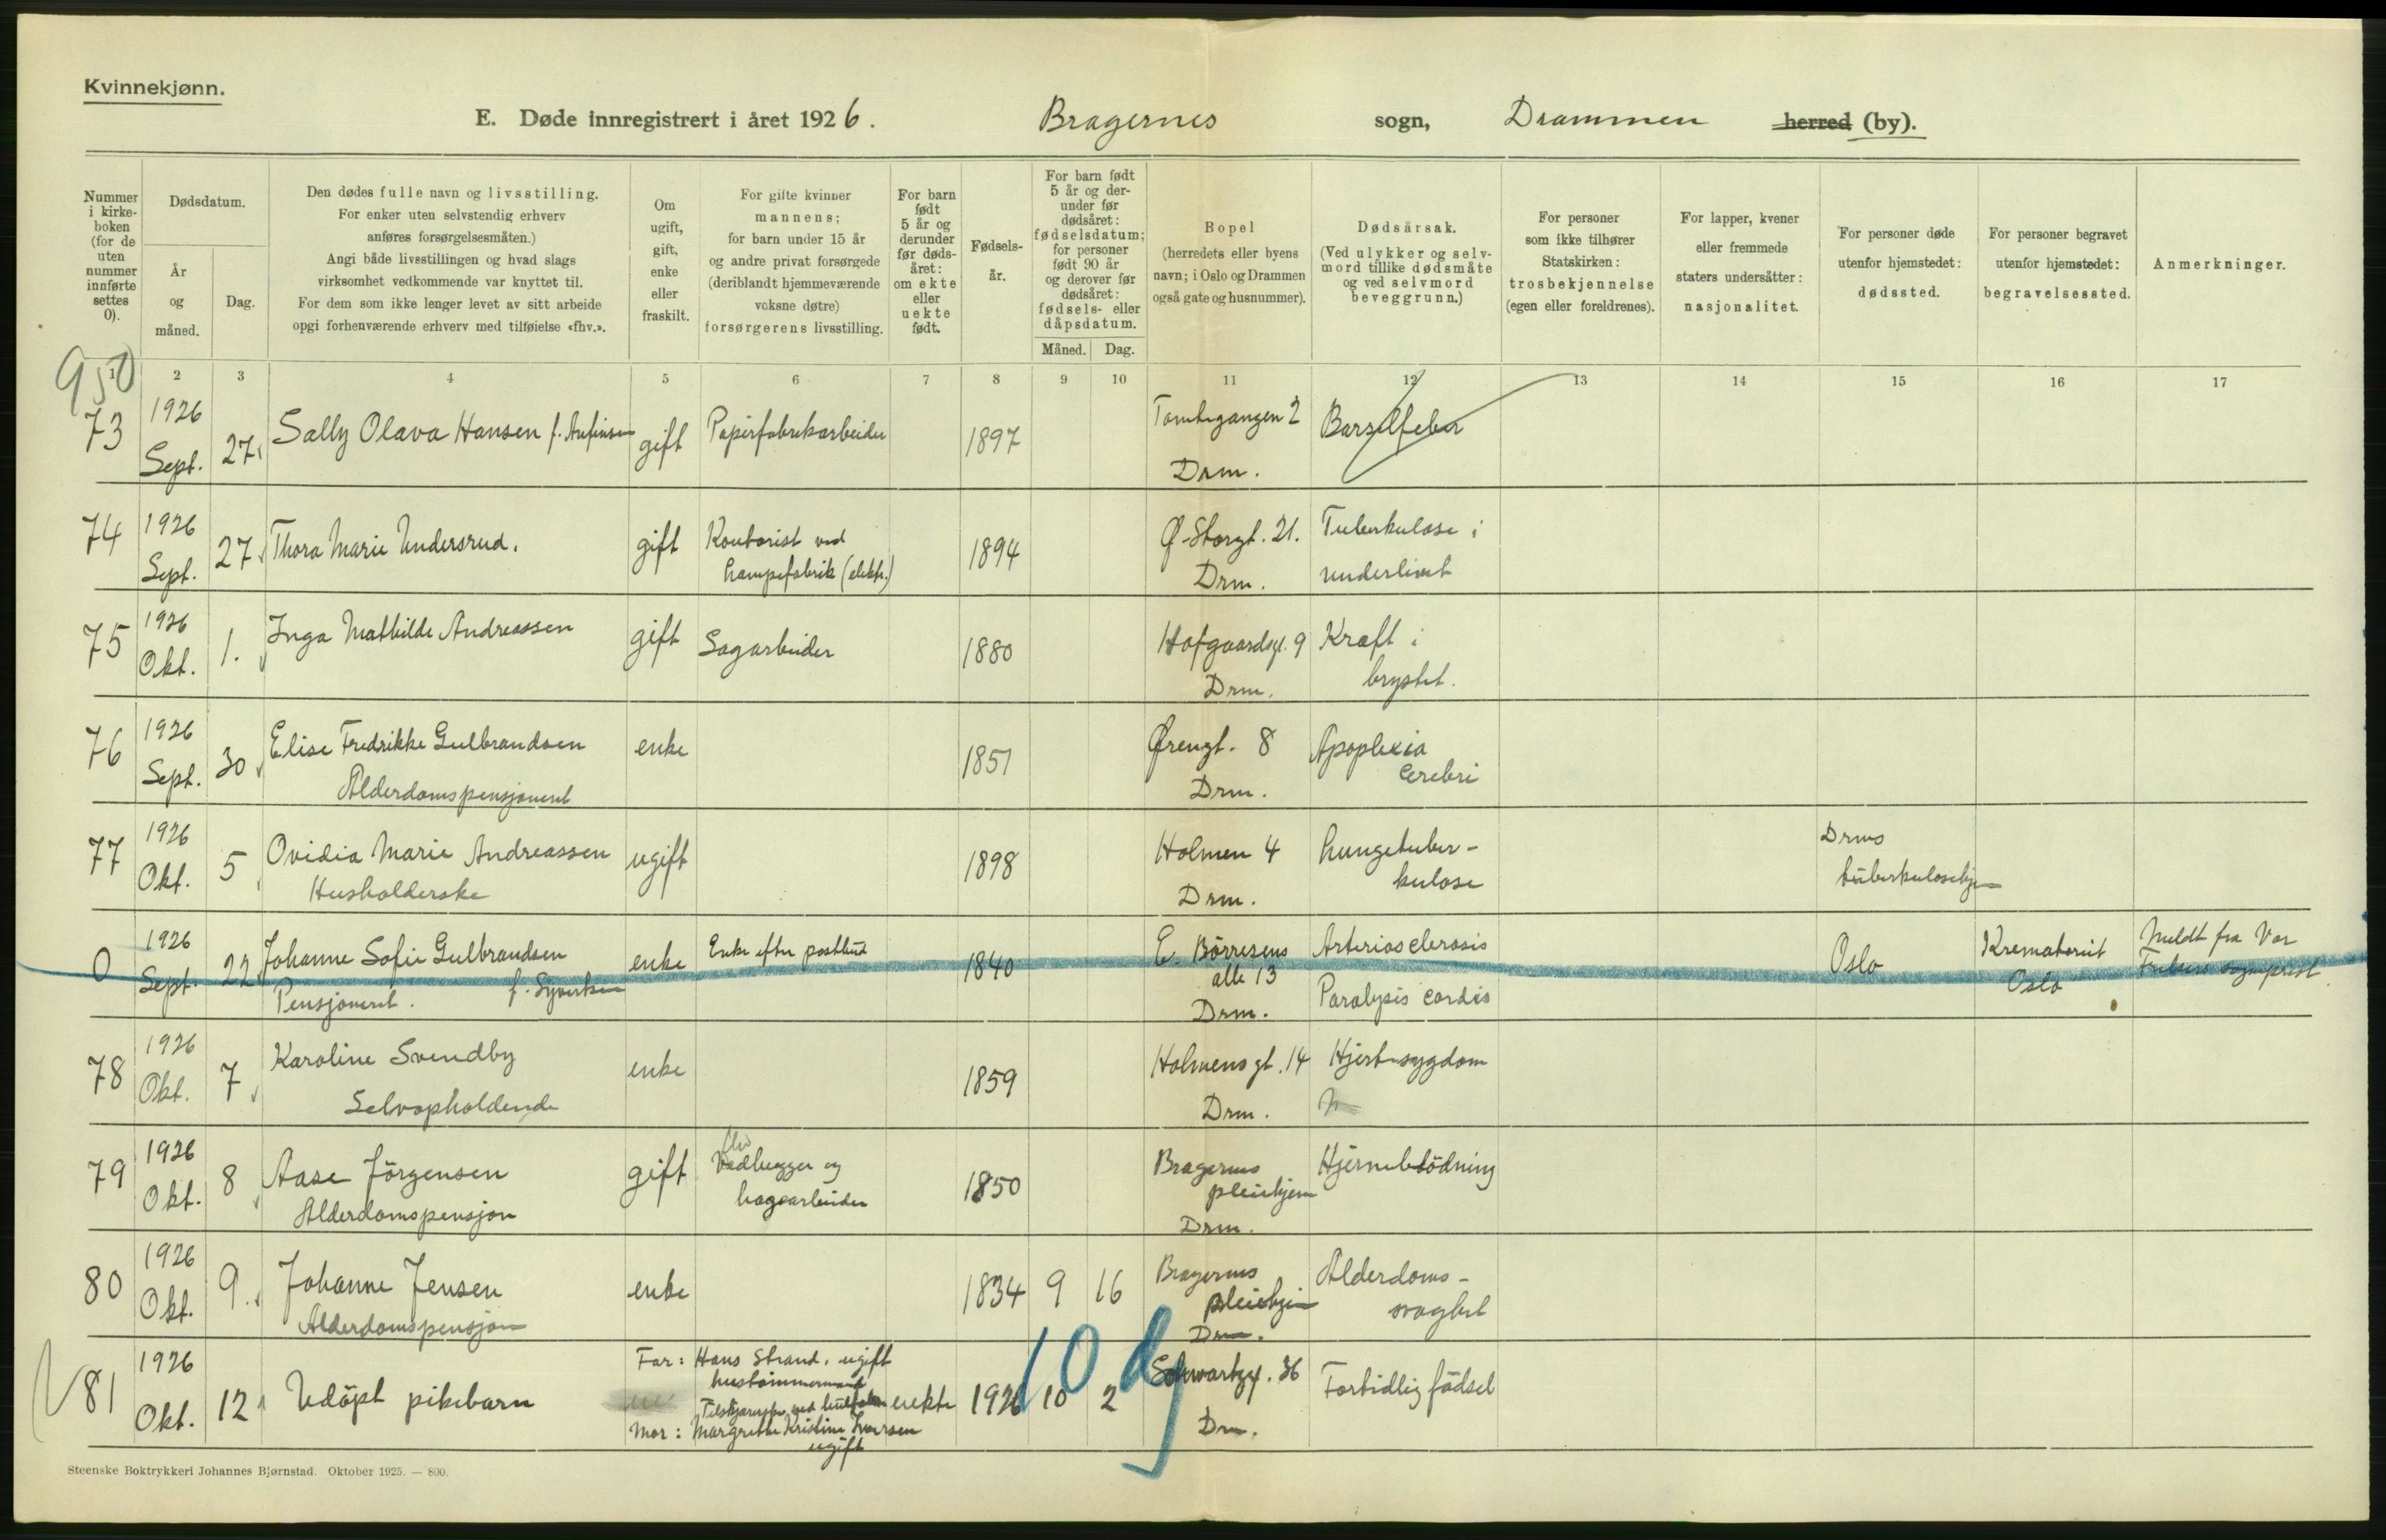 Kvinnekjønn.
E. Døde innregistrert i året 1926. Bragernes sogn, Drammen herred (by).
Nummer i kirkeboken (for de uten nummer innførte settes 0).
Dødsdatum.
År og måned.
Dag.
Den dødes fulle navn og livsstilling.
For enker uten selvstendig erhverv
anføres forsørgelsesmåten.)
Angi både livsstillingen og hvad slags
virksomhet vedkommende var knyttet til.
For dem som ikke lenger levet av sitt arbeide
opgi forhenværende erhverv med tilføielse «fhv.».
Om ugift, gift, enke eller fraskilt.
For gifte kvinner
mannens;
for barn under 15 år
og andre privat forsørgede
(deriblandt hjemmeværende
voksne døtre)
forsørgerens livsstilling.
For barn født 5 år og derunder før dødsåret: om ekte eller uekte født.
Fødselsår.
For barn født 5 år og derunder før dødsåret: fødselsdatum; for personer født 90 år og derover før dødsåret: fødsels- eller dåpsdatum.
Måned. Dag.
Bopel
(herredets eller byens
navn; i Oslo og Drammen
også gate og husnummer).
Dødsårsak.
(Ved ulykker og selvmord tillike dødsmåte og ved selvmord beveggrunn.)
For personer
som ikke tilhører
Statskirken:
trosbekjennelse
(egen eller foreldrenes).
For lapper, kvener
eller fremmede
staters undersåtter:
nasjonalitet.
For personer døde
utenfor hjemstedet:
dødssted.
For personer begravet
utenfor hjemstedet:
begravelsessted.
Anmerkninger.
1 2 3 4 5 6 7 8 9 10 11 12 13 14 15 16 17
950
73 1926 Sept. 27. Sally Olava Hansen f. Anfinsen gift Papirfabrikarbeider 1897 Tomtegangen 2 Drm. Barselfeber
74 1926 Sept. 27. Thora Marie Undersrud. gift Kontorist ved lampefabrik (elektr.) 1894 Ø. Storgt. 21. Drm. Tuberkulose i underlivet
75 1926 Okt. 1. Inga Mathilde Andreassen gift Sagarbeider 1880 Hofgaardsgt. 9 Drm. Kræft i brystet.
76 1926 Sept. 30 Elise Fredrikke Gulbrandsen Alderdomspensjoneret enke 1851 Ørengt. 8 Drm. Apoplexia cerebri
77 1926 Okt. 5 Ovidia Marie Andreassen Husholderske ugift 1898 Holmen 4 Drm. Lungetuberkulose Drms tuberkulosehjem
0 1926 Sept. 22 Johanne Sofie Gulbrandsen f. Syvertsen Pensjoneret. enke Enke efter postbud 1840 E. Börresens alle 13 Drm. Arteriosclerosis Paralysis cordis Oslo Krematoriet Oslo Meldt fra Vor Frelsers sogneprest.
78 1926 Okt. 7 Karoline Svendby Selvopholdende enke 1859 Holmens gt. 14 Drm. Hjertesygdom
79 1926 Okt. 8 Aase Jörgensen Alderdomspensjon gift fhv Vedhugger og havearbeider 1850 Bragernes pleiehjem Drm. Hjerneblödning
80 1926 Okt. 9. Johanne Jensen Alderdomspensjon enke 1834 9 16 Bragernes pleiehjem Drm. Alderdomssvaghet
10 d
81 1926 Okt. 12 Udöpt pikebarn Far: Hans Strand, ugift hustömmermand Mor: Margrethe Kristine Larsen ugift uekte 1926 10 2 Schwartzgt. 36 Drm. Fortidlig födsel
Steenske Boktrykkeri Johannes Bjørnstad. Oktober 1925. — 800.